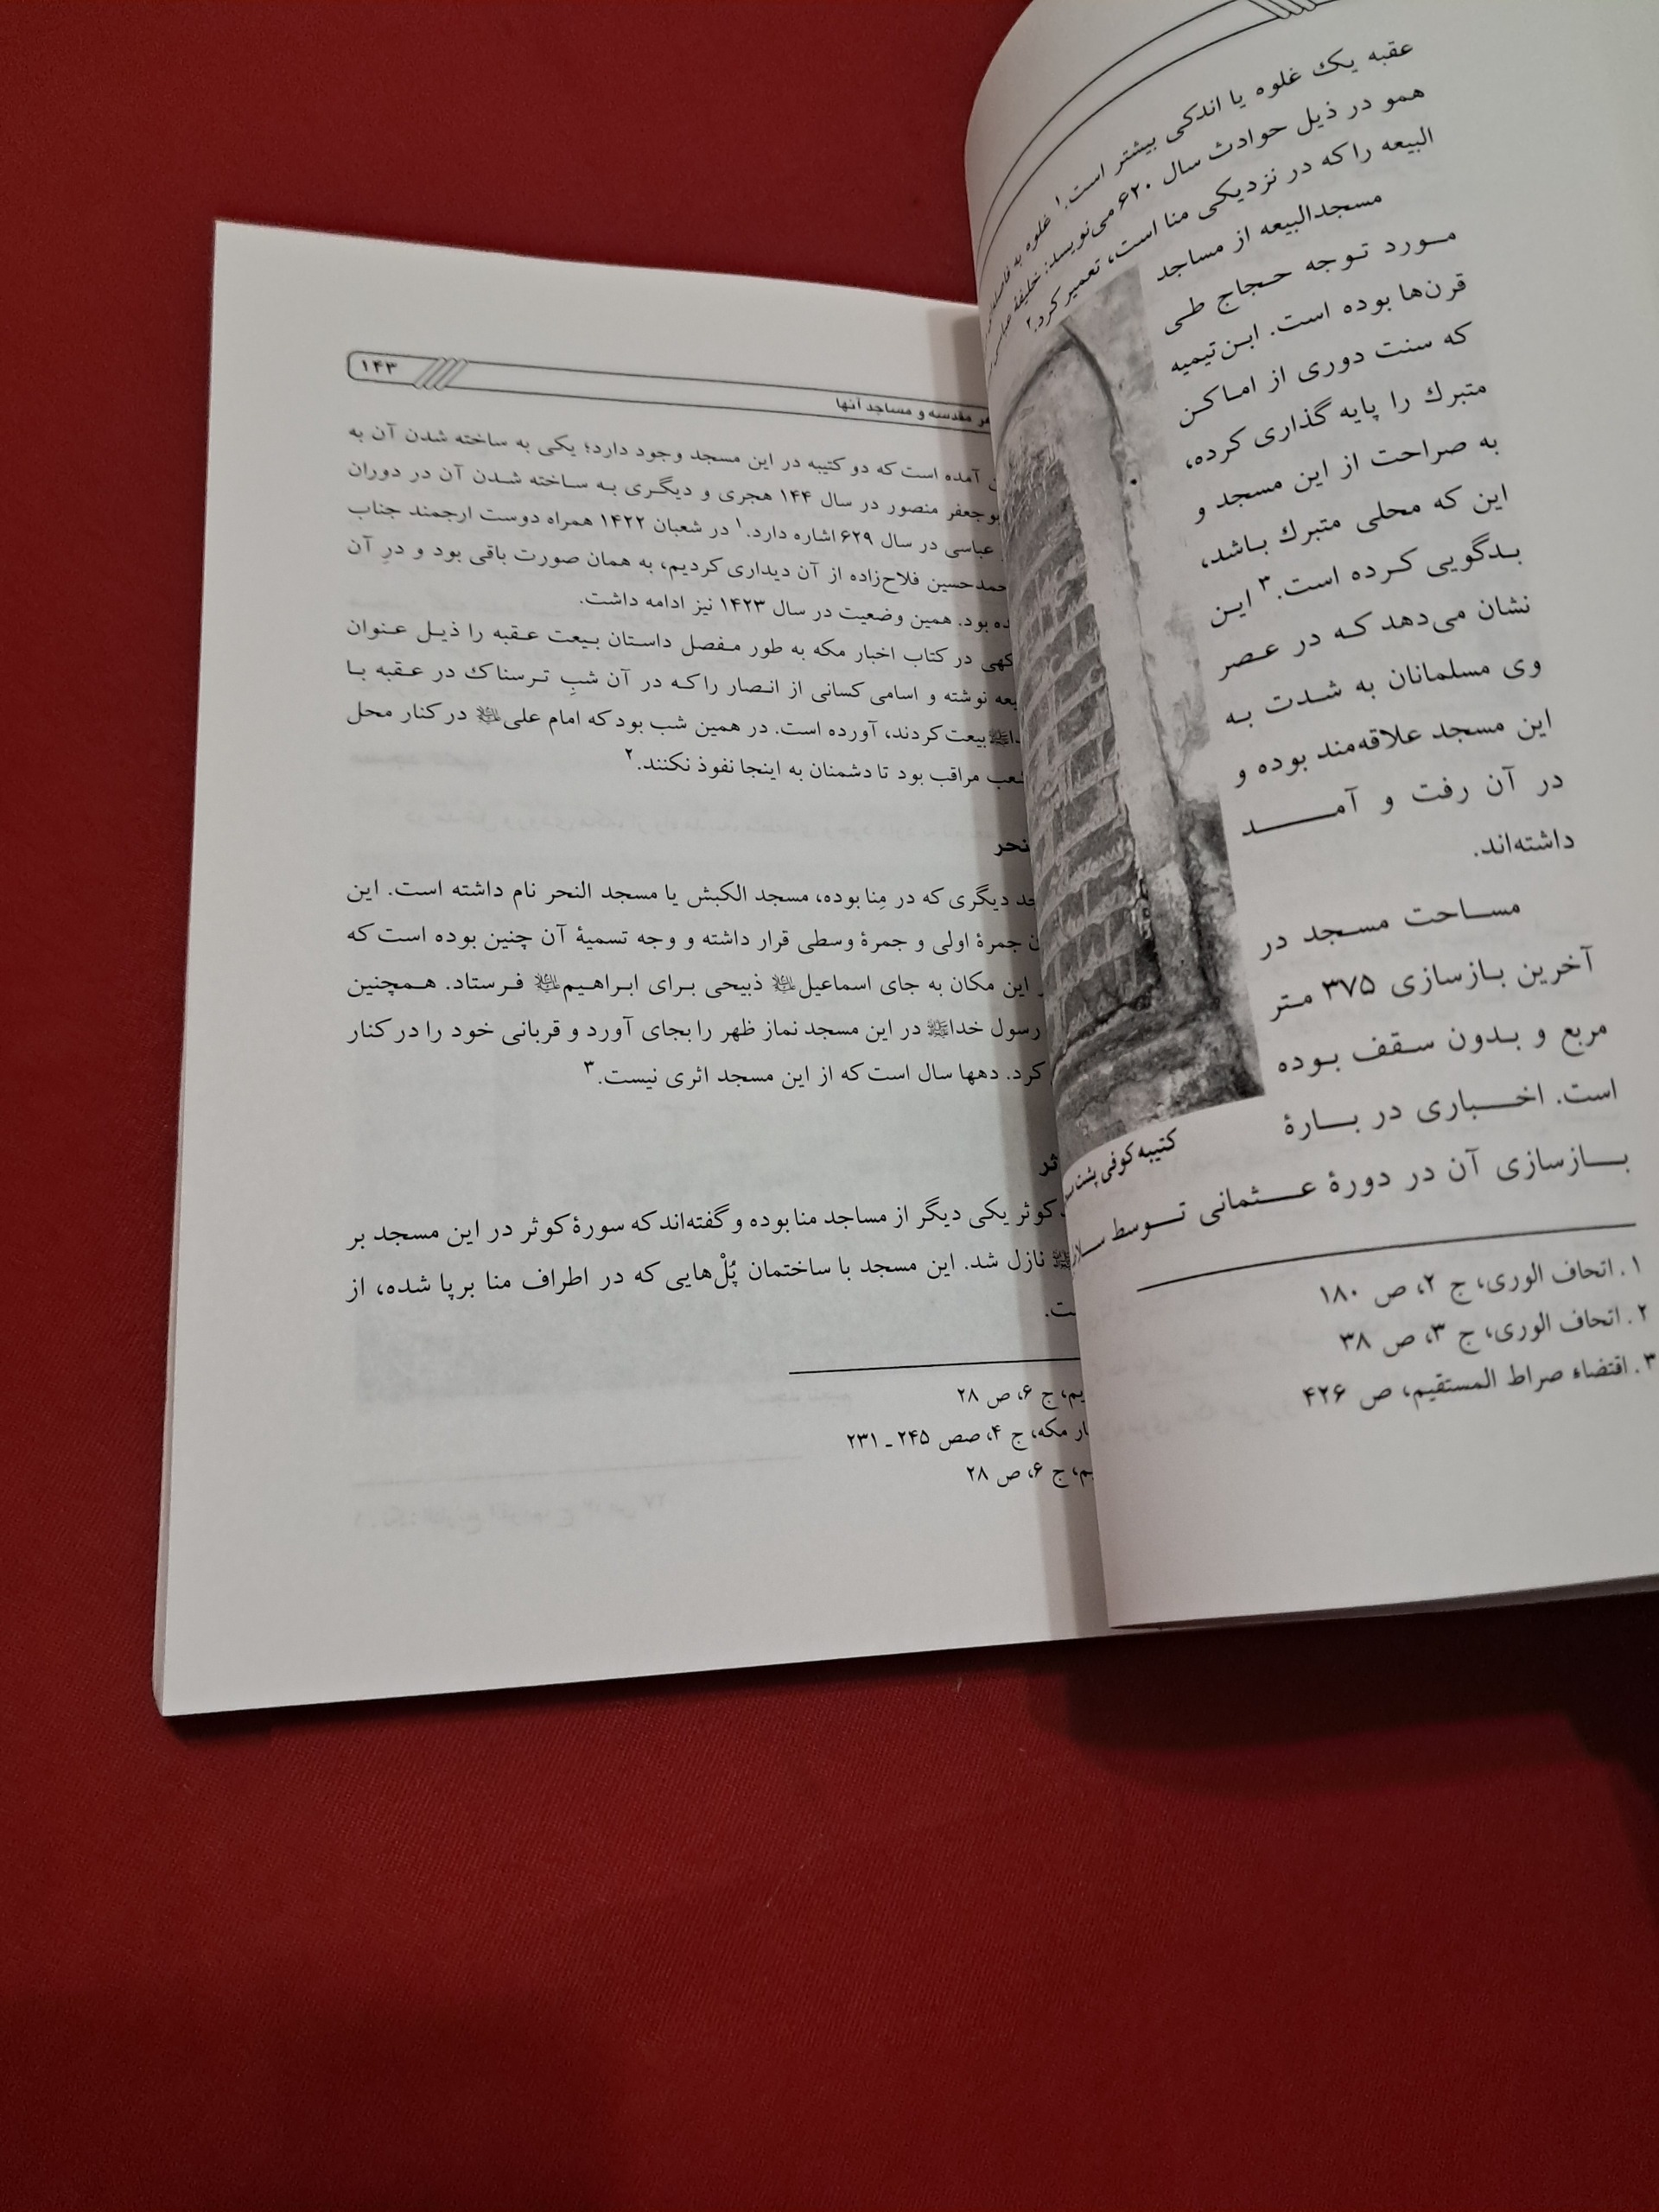 عقبه یک غلوه یا اندکی بیشتر است.۱ غلوه به
همو در ذیل حوادث سال ۶۲۰ می‌نویسد: خلیفهٔ
البیعه را که در نزدیکی منا است، تعمیر کرد.۲
مسجدالبیعه از مساجد
مورد توجه حجاج طی
قرن‌ها بوده است. ابن‌تیمیه
که سنت دوری از اماکن
متبرك را پایه گذاری کرده،
به صراحت از این مسجد و
این که محلی متبرك باشد،
بدگویی کرده است.۳ این
نشان می‌دهد که در عصر
وی مسلمانان به شدت به
این مسجد علاقه‌مند بوده و
در آن رفت و آمد
داشته‌اند.
مساحت مسجد در
آخرین بازسازی ۳۷۵ متر
مربع و بدون سقف بوده
است. اخباری در بارهٔ
بازسازی آن در دورهٔ عثمانی توسط
کتیبه کوفی پشت
۱. اتحاف الوری، ج ۲، ص ۱۸۰
۲. اتحاف الوری، ج ۳، ص ۳۸
۳. اقتضاء صراط المستقیم، ص ۴۲۶
مقدسه و مساجد آنها
۱۴۳
آمده است که دو کتیبه در این مسجد وجود دارد؛ یکی به ساخته شدن آن به
بوجعفر منصور در سال ۱۴۴ هجری و دیگری به ساخته شدن آن در دوران
عباسی در سال ۶۲۹ اشاره دارد.۱ در شعبان ۱۴۲۲ همراه دوست ارجمند جناب
حمدحسین فلاح‌زاده از آن دیداری کردیم، به همان صورت باقی بود و درِ آن
ده بود. همین وضعیت در سال ۱۴۲۳ نیز ادامه داشت.
کهی در کتاب اخبار مکه به طور مفصل داستان بیعت عقبه را ذیل عنوان
بعه نوشته و اسامی کسانی از انصار را که در آن شبِ ترسناك در عقبه با
داﷺ بیعت کردند، آورده است. در همین شب بود که امام علی؏ در کنار محل
عب مراقب بود تا دشمنان به اینجا نفوذ نکنند.۲
نحر
جد دیگری که در مِنا بوده، مسجد الکبش یا مسجد النحر نام داشته است. این
ن جمرهٔ اولی و جمرهٔ وسطی قرار داشته و وجه تسمیهٔ آن چنین بوده است که
این مکان به جای اسماعیل؏ ذبیحی برای ابراهیم؏ فرستاد. همچنین
رسول خداﷺ در این مسجد نماز ظهر را بجای آورد و قربانی خود را در کنار
کرد. دهها سال است که از این مسجد اثری نیست.۳
ثر
کوثر یکی دیگر از مساجد منا بوده و گفته‌اند که سورهٔ کوثر در این مسجد بر
ﷺ نازل شد. این مسجد با ساختمان پُلْ‌هایی که در اطراف منا برپا شده، از
ست.
یم، ج ۶، ص ۲۸
ار مکه، ج ۴، صص ۲۴۵ ـ ۲۳۱
یم، ج ۶، ص ۲۸